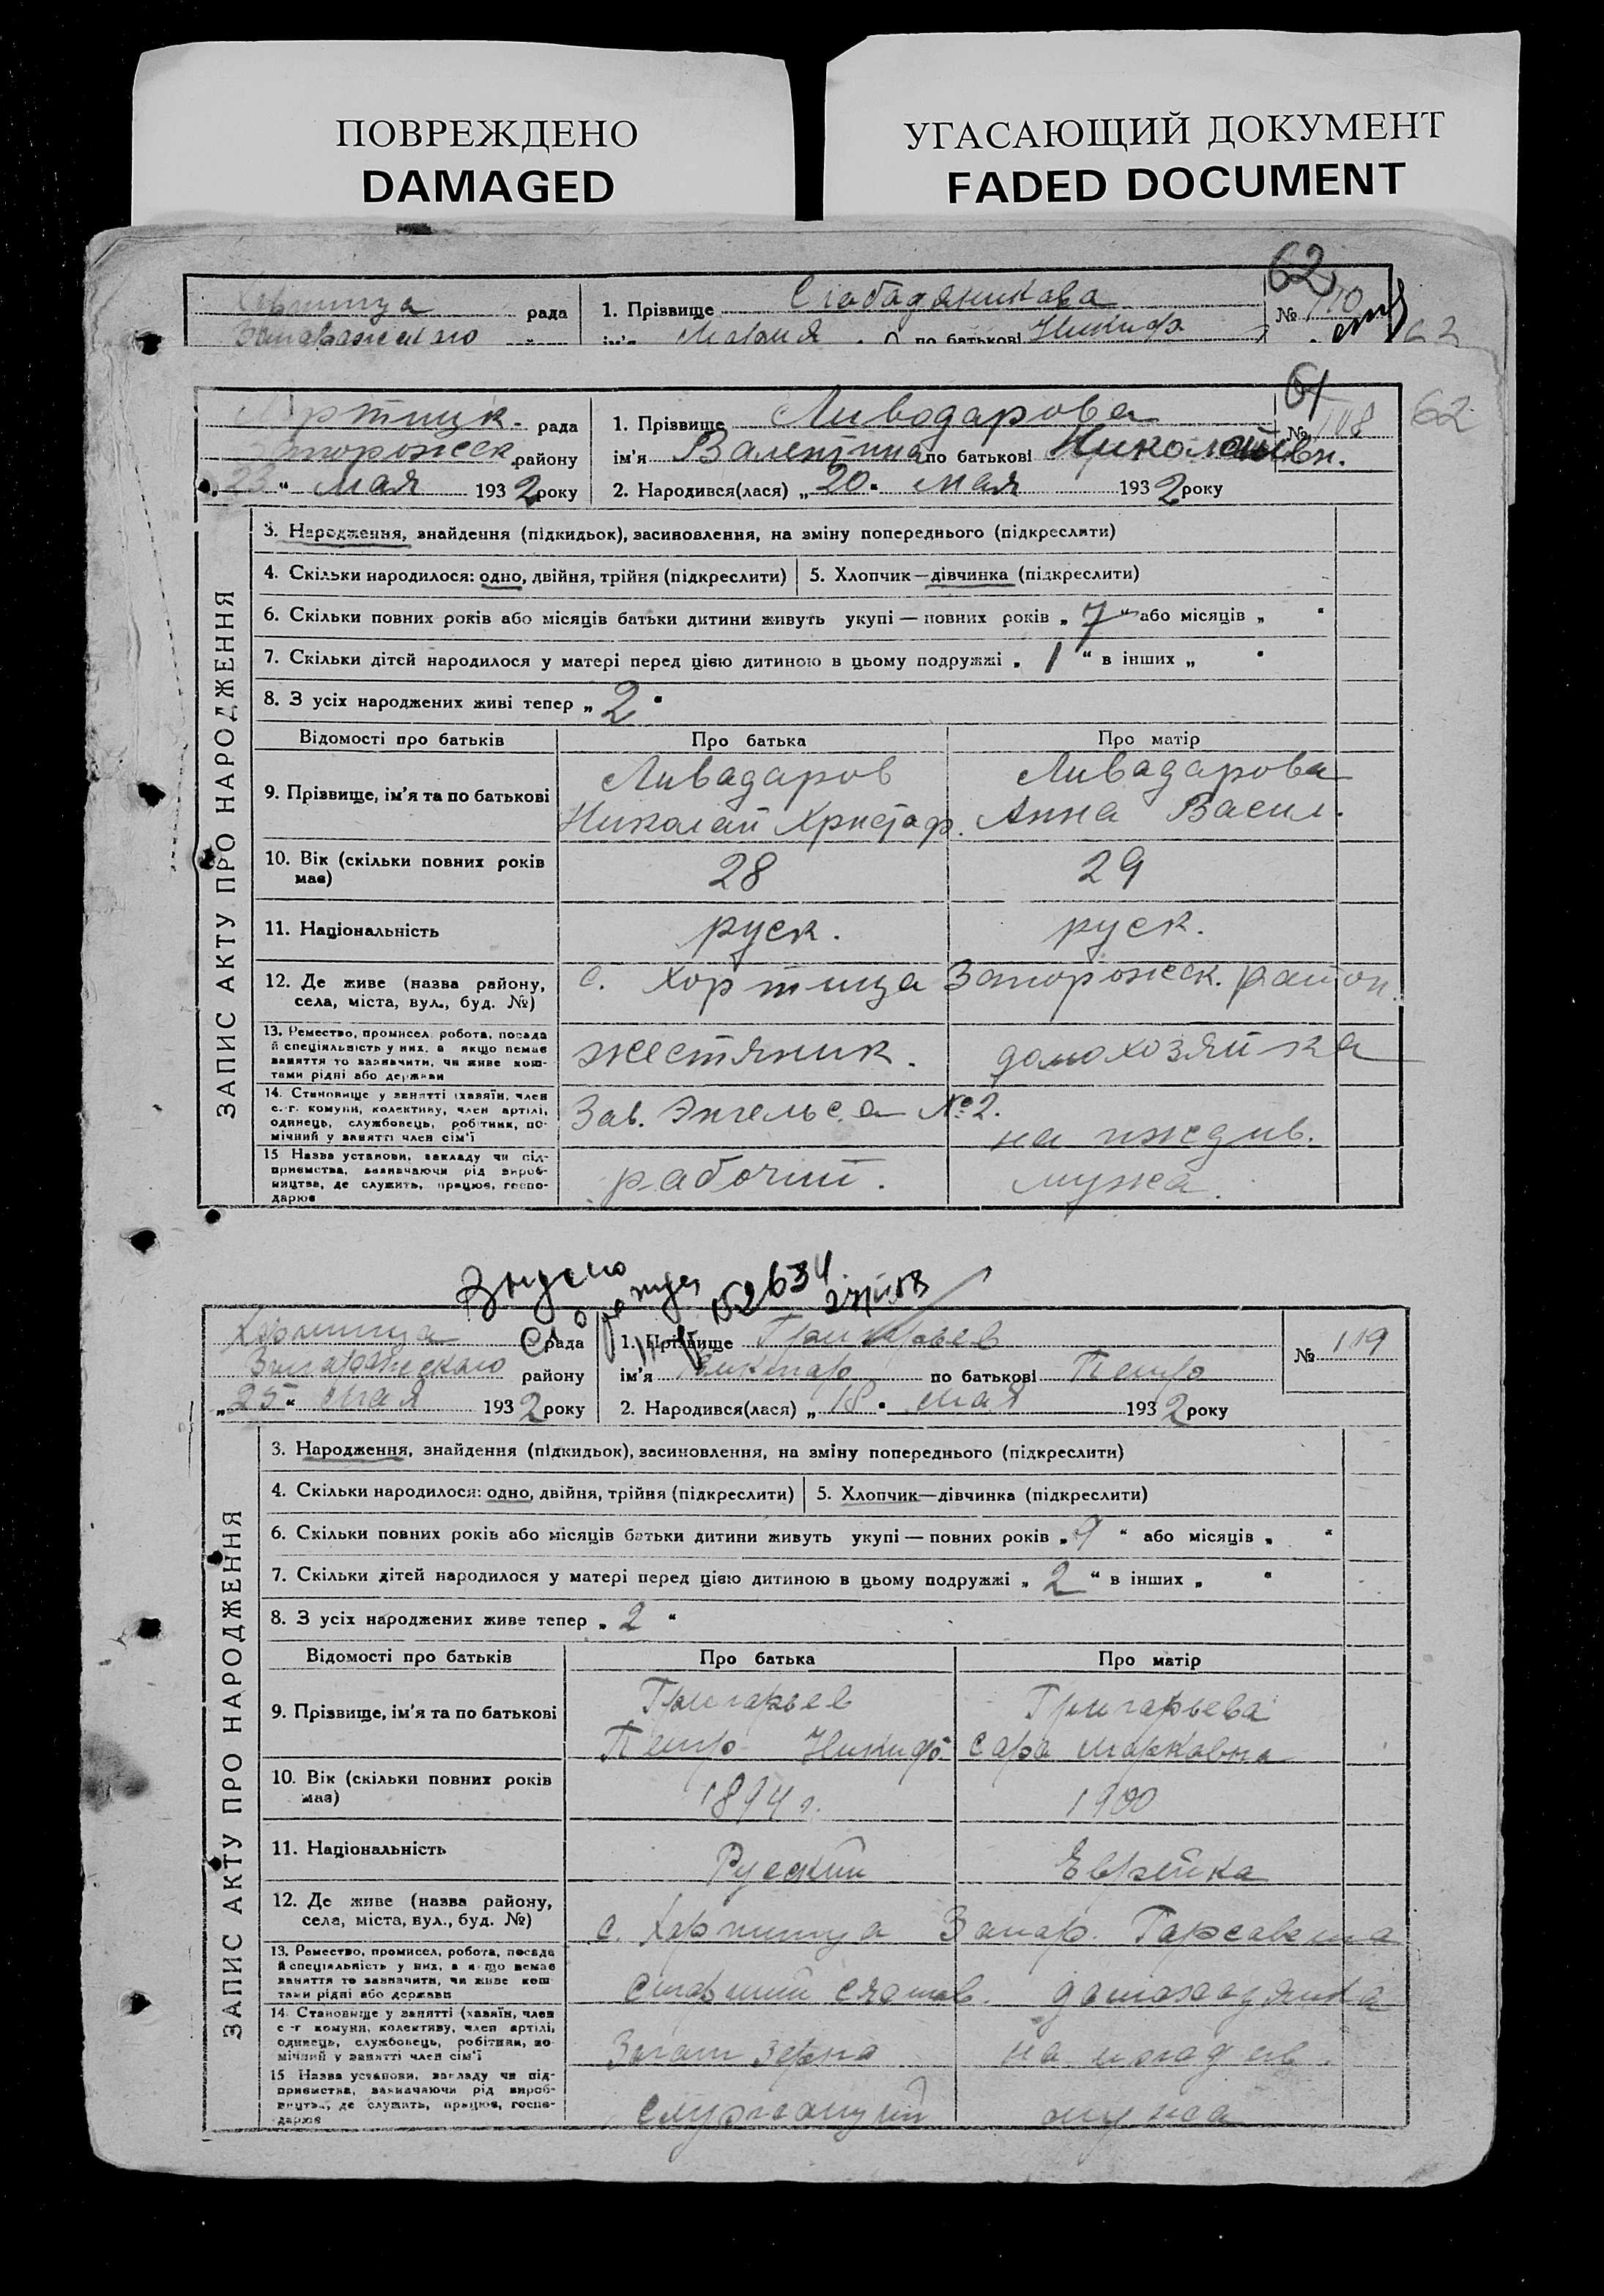 ПОВРЕЖДЕНО
DAMAGED
УГАСАЮЩИЙ ДОКУМЕНТ
FADED DOCUMENT
62
Хортица рада 1. Прізвище Слободяникова № 110
ім'я Мария по батькові Никиф
62
61
62
Хортицк. рада 1. Прізвище Ливодарова № 108
Запорожск. району ім'я Валентина по батькові Николаевн.
„23“ мая 1932 року 2. Народився(лася) „20“ мая 1932 року
ЗАПИС АКТУ ПРО НАРОДЖЕННЯ
3. Народження, знайдення (підкидьок), засиновлення, на зміну попереднього (підкреслити)
4. Скільки народилося: одно, двійня, трійня (підкреслити) 5. Хлопчик—дівчинка (підкреслити)
6. Скільки повних років або місяців батьки дитини живуть укупі — повних років „7“ або місяців „ “
7. Скільки дітей народилося у матері перед цією дитиною в цьому подружжі „1“ в інших „ “
8. З усіх народжених живі тепер „2“
Відомості про батьків Про батька Про матір
9. Прізвище, ім'я та по батькові Ливадаров Ливадарова
Николай Христоф. Анна Васил.
10. Вік (скільки повних років має) 28 29
11. Національність руск. руск.
12. Де живе (назва району, села, міста, вул., буд. №) с. Хортица Запорожск. район.
13. Ремество, промисел, робота, посада й спеціяльність у них, а якщо немає заняття то зазначити, чи живе коштами рідні або держави жестяник. домохозяйка
14. Становище у занятті (хазяїн, член с.-г. комуни, колективу, член артілі, одинець, службовець, робітник, помічний у занятті член сім'ї Зав. Энгельса №2. на иждив.
15 Назва установи, закладу чи підприємства, зазначаючи рід виробництва, де служить, працює, господарює рабочий. мужа.
152634
Хортица рада 1. Прізвище Григорьев № 119
Запорожского району ім'я Виктор по батькові Петро
„25“ мая 1932 року 2. Народився(лася) „18“ мая 1932 року
ЗАПИС АКТУ ПРО НАРОДЖЕННЯ
3. Народження, знайдення (підкидьок), засиновлення, на зміну попереднього (підкреслити)
4. Скільки народилося: одно, двійня, трійня (підкреслити) 5. Хлопчик—дівчинка (підкреслити)
6. Скільки повних років або місяців батьки дитини живуть укупі — повних років „9“ або місяців „ “
7. Скільки дітей народилося у матері перед цією дитиною в цьому подружжі „2“ в інших „ “
8. З усіх народжених живе тепер „2“
Відомості про батьків Про батька Про матір
9. Прізвище, ім'я та по батькові Григарьев Григарьева
Петр Никиф. Сара Марковна
10. Вік (скільки повних років має) 1894 г. 1900
11. Національність Руский Еврейка
12. Де живе (назва району, села, міста, вул., буд. №) с. Хортица Запор.
13. Ремество, промисел, робота, посада й спеціяльність у них, а якщо немає заняття то зазначити, чи живе коштами рідні або держави домохозяйка
14. Становище у занятті (хазяїн, член с-г комуни, колективу, член артілі, одинець, службовець, робітник, помічний у занятті член сім'ї на иждив.
15 Назва установи, закладу чи підприємства, зазначаючи рід виробництва, де служить, працює, господарює служащий мужа